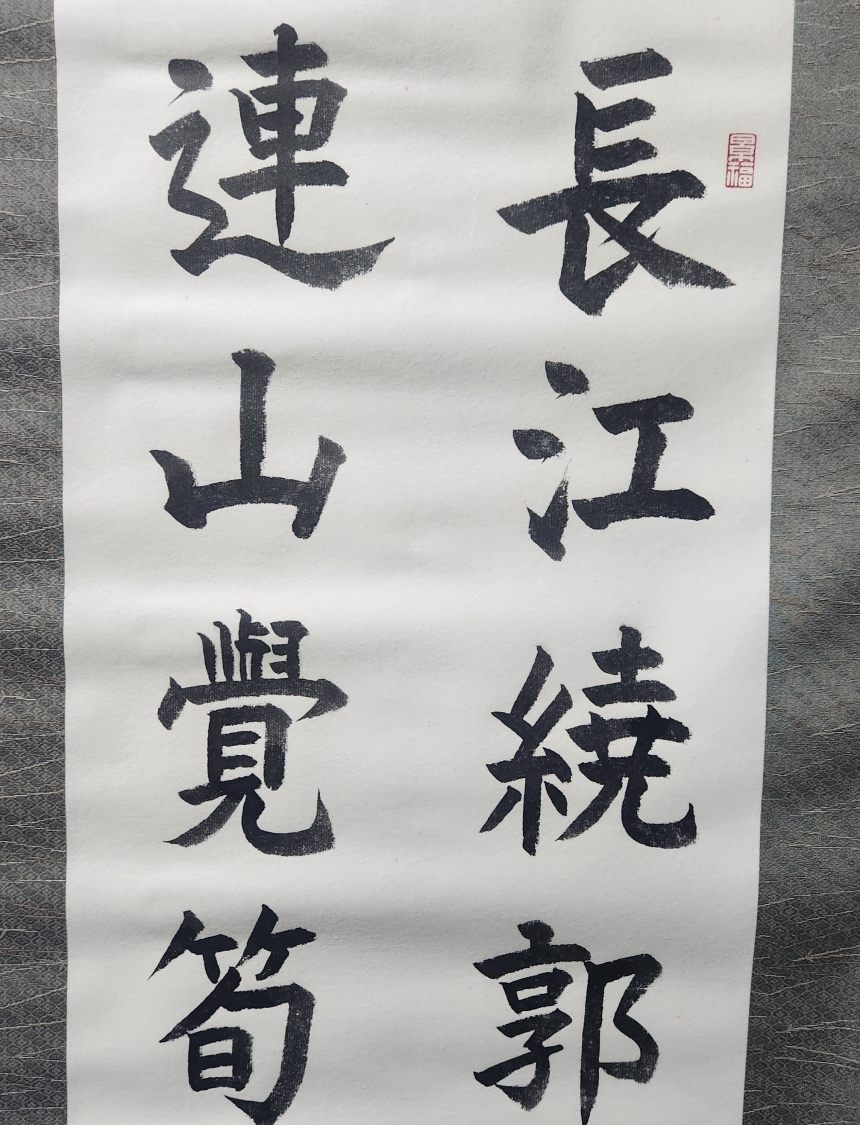 長江繞郭
連山覺筍
景福